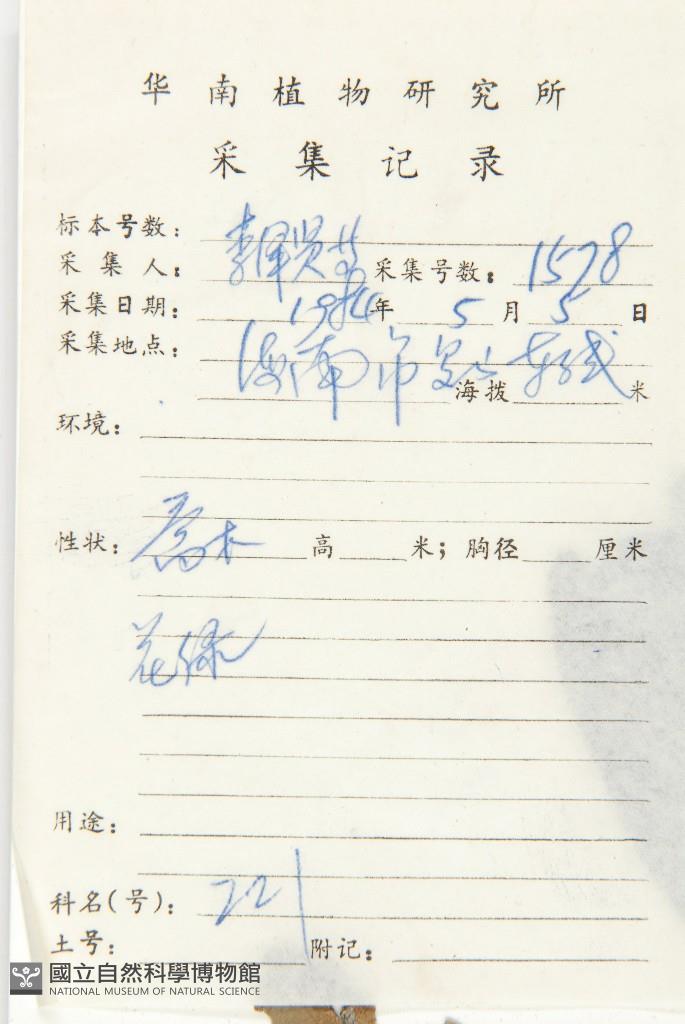 华南植物研究所
采集记录
标本号数：
采集人： 李泽贤等 采集号数： 1578
采集日期： 1984年 5 月 5 日
采集地点： 海南 海拨 米
环境：
性状： 乔木 高 米；胸径 厘米
花绿
用途：
科名(号)： 221
土号： 附记：
國立自然科學博物館
NATIONAL MUSEUM OF NATURAL SCIENCE